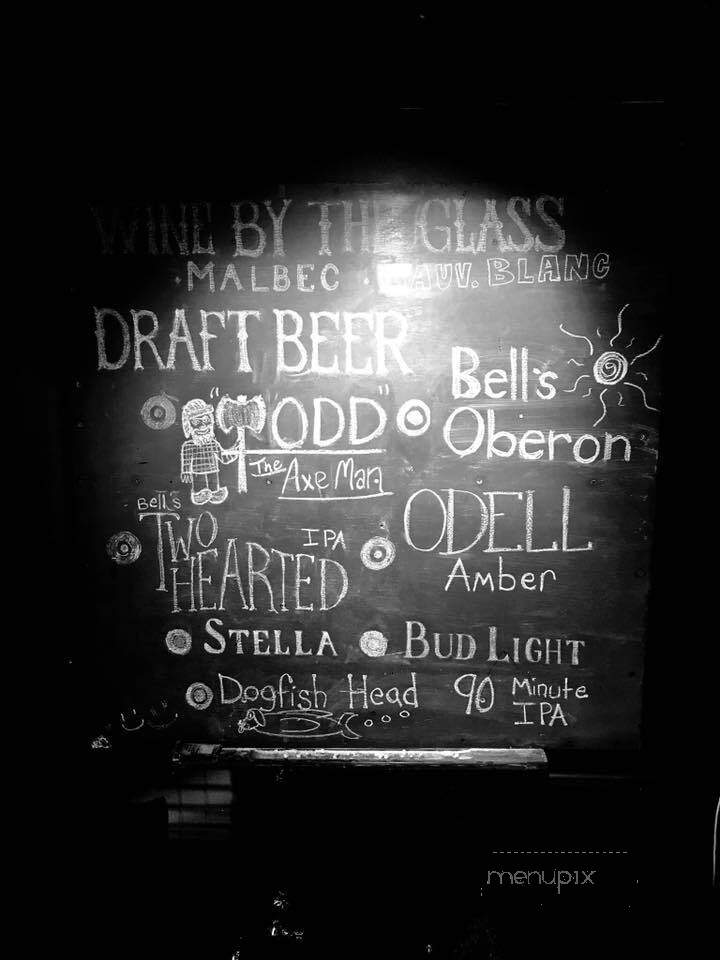 WINE BY THE GLASS
· MALBEC · SAUV. BLANC
DRAFT BEER
"ODD"
The Axe Man
Bell's
Oberon
Bell's
TWO
HEARTED
IPA
ODELL
Amber
STELLA
BUD LIGHT
Dogfish Head 90 Minute
IPA
menupix